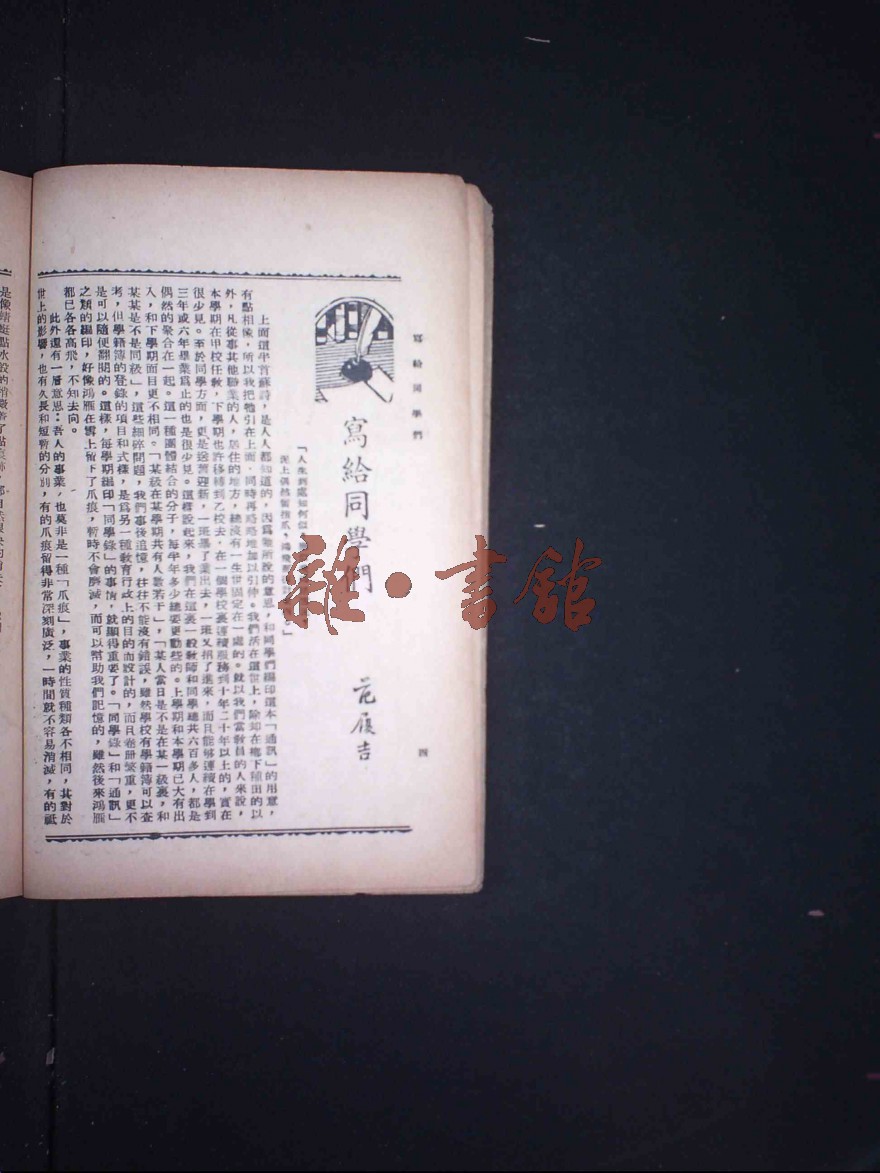 寫給同學們
四
寫給同學們
范履吉
「人生到處知何似
泥上偶然留指爪,鴻飛
上面這半首蘇詩,是人人都知道的,因爲牠所說的意思,和同學們編印這本「通訊」的用意,
有點相像,所以我把牠引在上面,同時再略略地加以引伸。我們活在這世上,除却在鄉下種田的以
外,凡從事其他職業的人,居住的地方,總沒有一生世固定在一處的。就以我們當敎員的人來說,
本學期在甲校任敎,下學期也許移轉到乙校去,在一個學校裏連續服務到十年二十年以上的,實在
很少見。至於同學方面,更是送舊迎新,一班畢了業出去,一班又招了進來,而且能够連續在學到
三年或六年畢業爲止的也是很少見。這樣說起來,我們在這裏一般敎師和同學總共六百多人,都是
偶然的聚合在一起。這一種團體結合的分子,每半年多少總要更動些的。上學期和本學期已大有出
入,和下學期面目更不相同。「某級在某學期共有人數若干」,「某人當日是不是在某一級裏,和
某某是不是同級」,這些細碎問題,我們事後追憶,往往不能沒有錯誤,雖然學校有學籍簿可以查
考,但學籍簿的登錄的項目和式樣,是爲另一種敎育行政上的目的而設計的,而且卷册繁重,更不
是可以隨便翻閱的。這樣,每學期編印「同學錄」的事情,就顯得重要了。「同學錄」和「通訊」
之類的編印,好像鴻雁在雪上留下了爪痕,暫時不會磨滅,而可以幫助我們記憶的,雖然後來鴻雁
都已各各高飛,不知去向。
此外還有一層意思:吾人的事業,也莫非是一種「爪痕」,事業的性質種類各不相同,其對於
世上的影響,也有久長和短暫的分別,有的爪痕留得非常深刻廣泛,一時間就不容易消滅,有的祗
是像蜻蜓點水般的
雜·書館